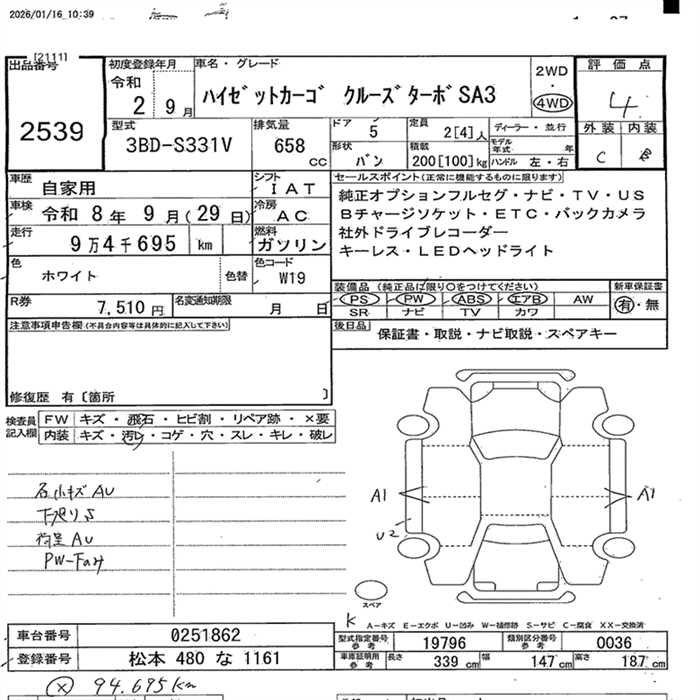 2026/01/16 10:39
[2111]
出品番号
2539
初度登録年月
令和
2 9月
車名・グレード
ハイゼットカーゴ クルーズターボSA3
2WD
・
4WD
評価点
4
外装 内装
C B
型式
3BD-S331V
排気量
658 CC
ドア 5
定員 2[4]人
ディーラー・並行
モデル年式 年
形状 バン
積載 200[100]kg
ハンドル 左・右
車歴 自家用
シフト IAT
車検 令和 8年 9月(29日)
冷房 AC
走行 9万4千695 km
燃料 ガソリン
色 ホワイト 色替
色コード W19
R券 7,510円
名変通知期限 月 日
セールスポイント(正常に機能するものに限ります)
純正オプションフルセグ・ナビ・TV・US
Bチャージソケット・ETC・バックカメラ
社外ドライブレコーダー
キーレス・LEDヘッドライト
装備品(純正品に限り○をつけてください)
新車保証書
PS PW ABS エアB AW
SR ナビ TV カワ
有・無
後日品 保証書・取説・ナビ取説・スペアキー
注意事項申告欄(不具合内容等は具体的に記入して下さい)
修復歴 有〔箇所 〕
検査員記入欄
FW キズ・飛石・ヒビ割・リペア跡・×要
内装 キズ・汚レ・コゲ・穴・スレ・キレ・破レ
小キズ AU
下廻りS
荷室AU
A1
A1
U2
スペア
K
A-キズ E-エクボ U-凹み W-補修跡 S-サビ C-腐食 XX-交換済
車台番号 0251862
登録番号 松本 480 な 1161
型式指定番号参考 19796
類別区分番号参考 0036
車庫証明用参考 長さ 339 cm 幅 147 cm 高さ 187 cm
94.695km